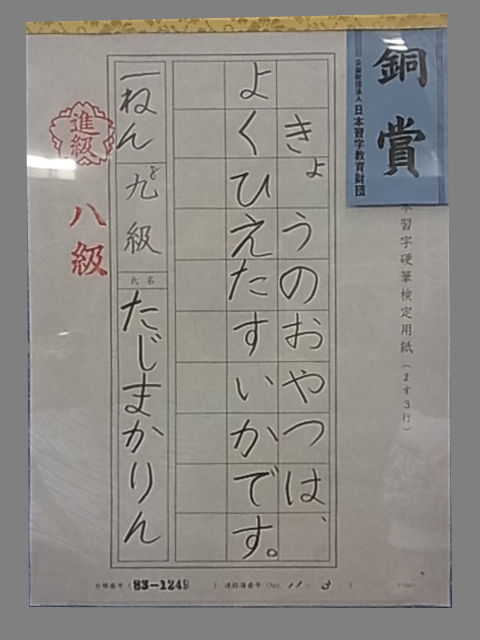 銅賞
公益財団法人 日本習字教育財団
本習字硬筆検定用紙(ます3行)
きょうのおやつは、
よくひえたすいかです。
一ねん
九級
氏名
たじまかりん
進級
八級
台帳番号(83-1249) 連絡簿番号(No. 11-3)